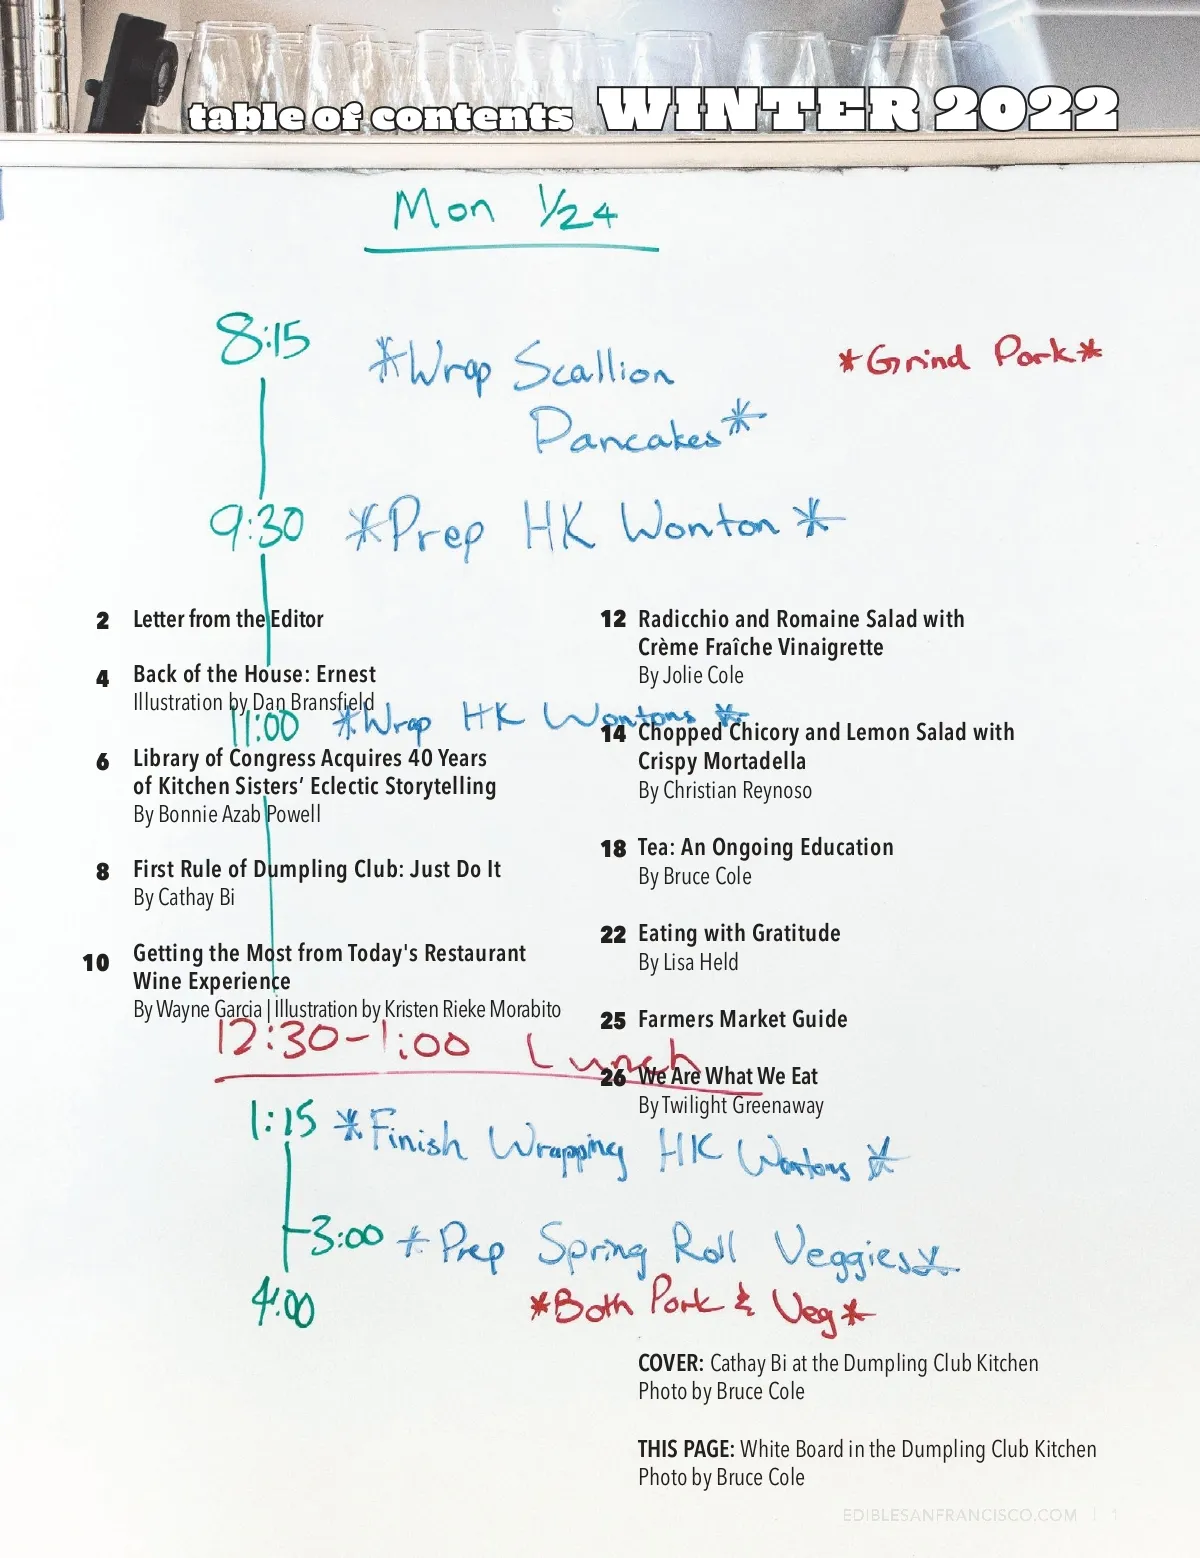 table of contents WINTER 2022
Mon 1/24
8:15
*Wrap Scallion
Pancakes*
*Grind Pork*
9:30 *Prep HK Wonton*
11:00 *Wrap HK Wontons*
12:30-1:00 Lunch
1:15 *Finish Wrapping HK Wontons*
3:00 *Prep Spring Roll Veggies*
4:00
*Both Pork & Veg*
2 Letter from the Editor
4 Back of the House: Ernest
Illustration by Dan Bransfield
6 Library of Congress Acquires 40 Years
of Kitchen Sisters’ Eclectic Storytelling
By Bonnie Azab Powell
8 First Rule of Dumpling Club: Just Do It
By Cathay Bi
10 Getting the Most from Today's Restaurant
Wine Experience
By Wayne Garcia | Illustration by Kristen Rieke Morabito
12 Radicchio and Romaine Salad with
Crème Fraîche Vinaigrette
By Jolie Cole
14 Chopped Chicory and Lemon Salad with
Crispy Mortadella
By Christian Reynoso
18 Tea: An Ongoing Education
By Bruce Cole
22 Eating with Gratitude
By Lisa Held
25 Farmers Market Guide
26 We Are What We Eat
By Twilight Greenaway
COVER: Cathay Bi at the Dumpling Club Kitchen
Photo by Bruce Cole
THIS PAGE: White Board in the Dumpling Club Kitchen
Photo by Bruce Cole
EDIBLESANFRANCISCO.COM | 1